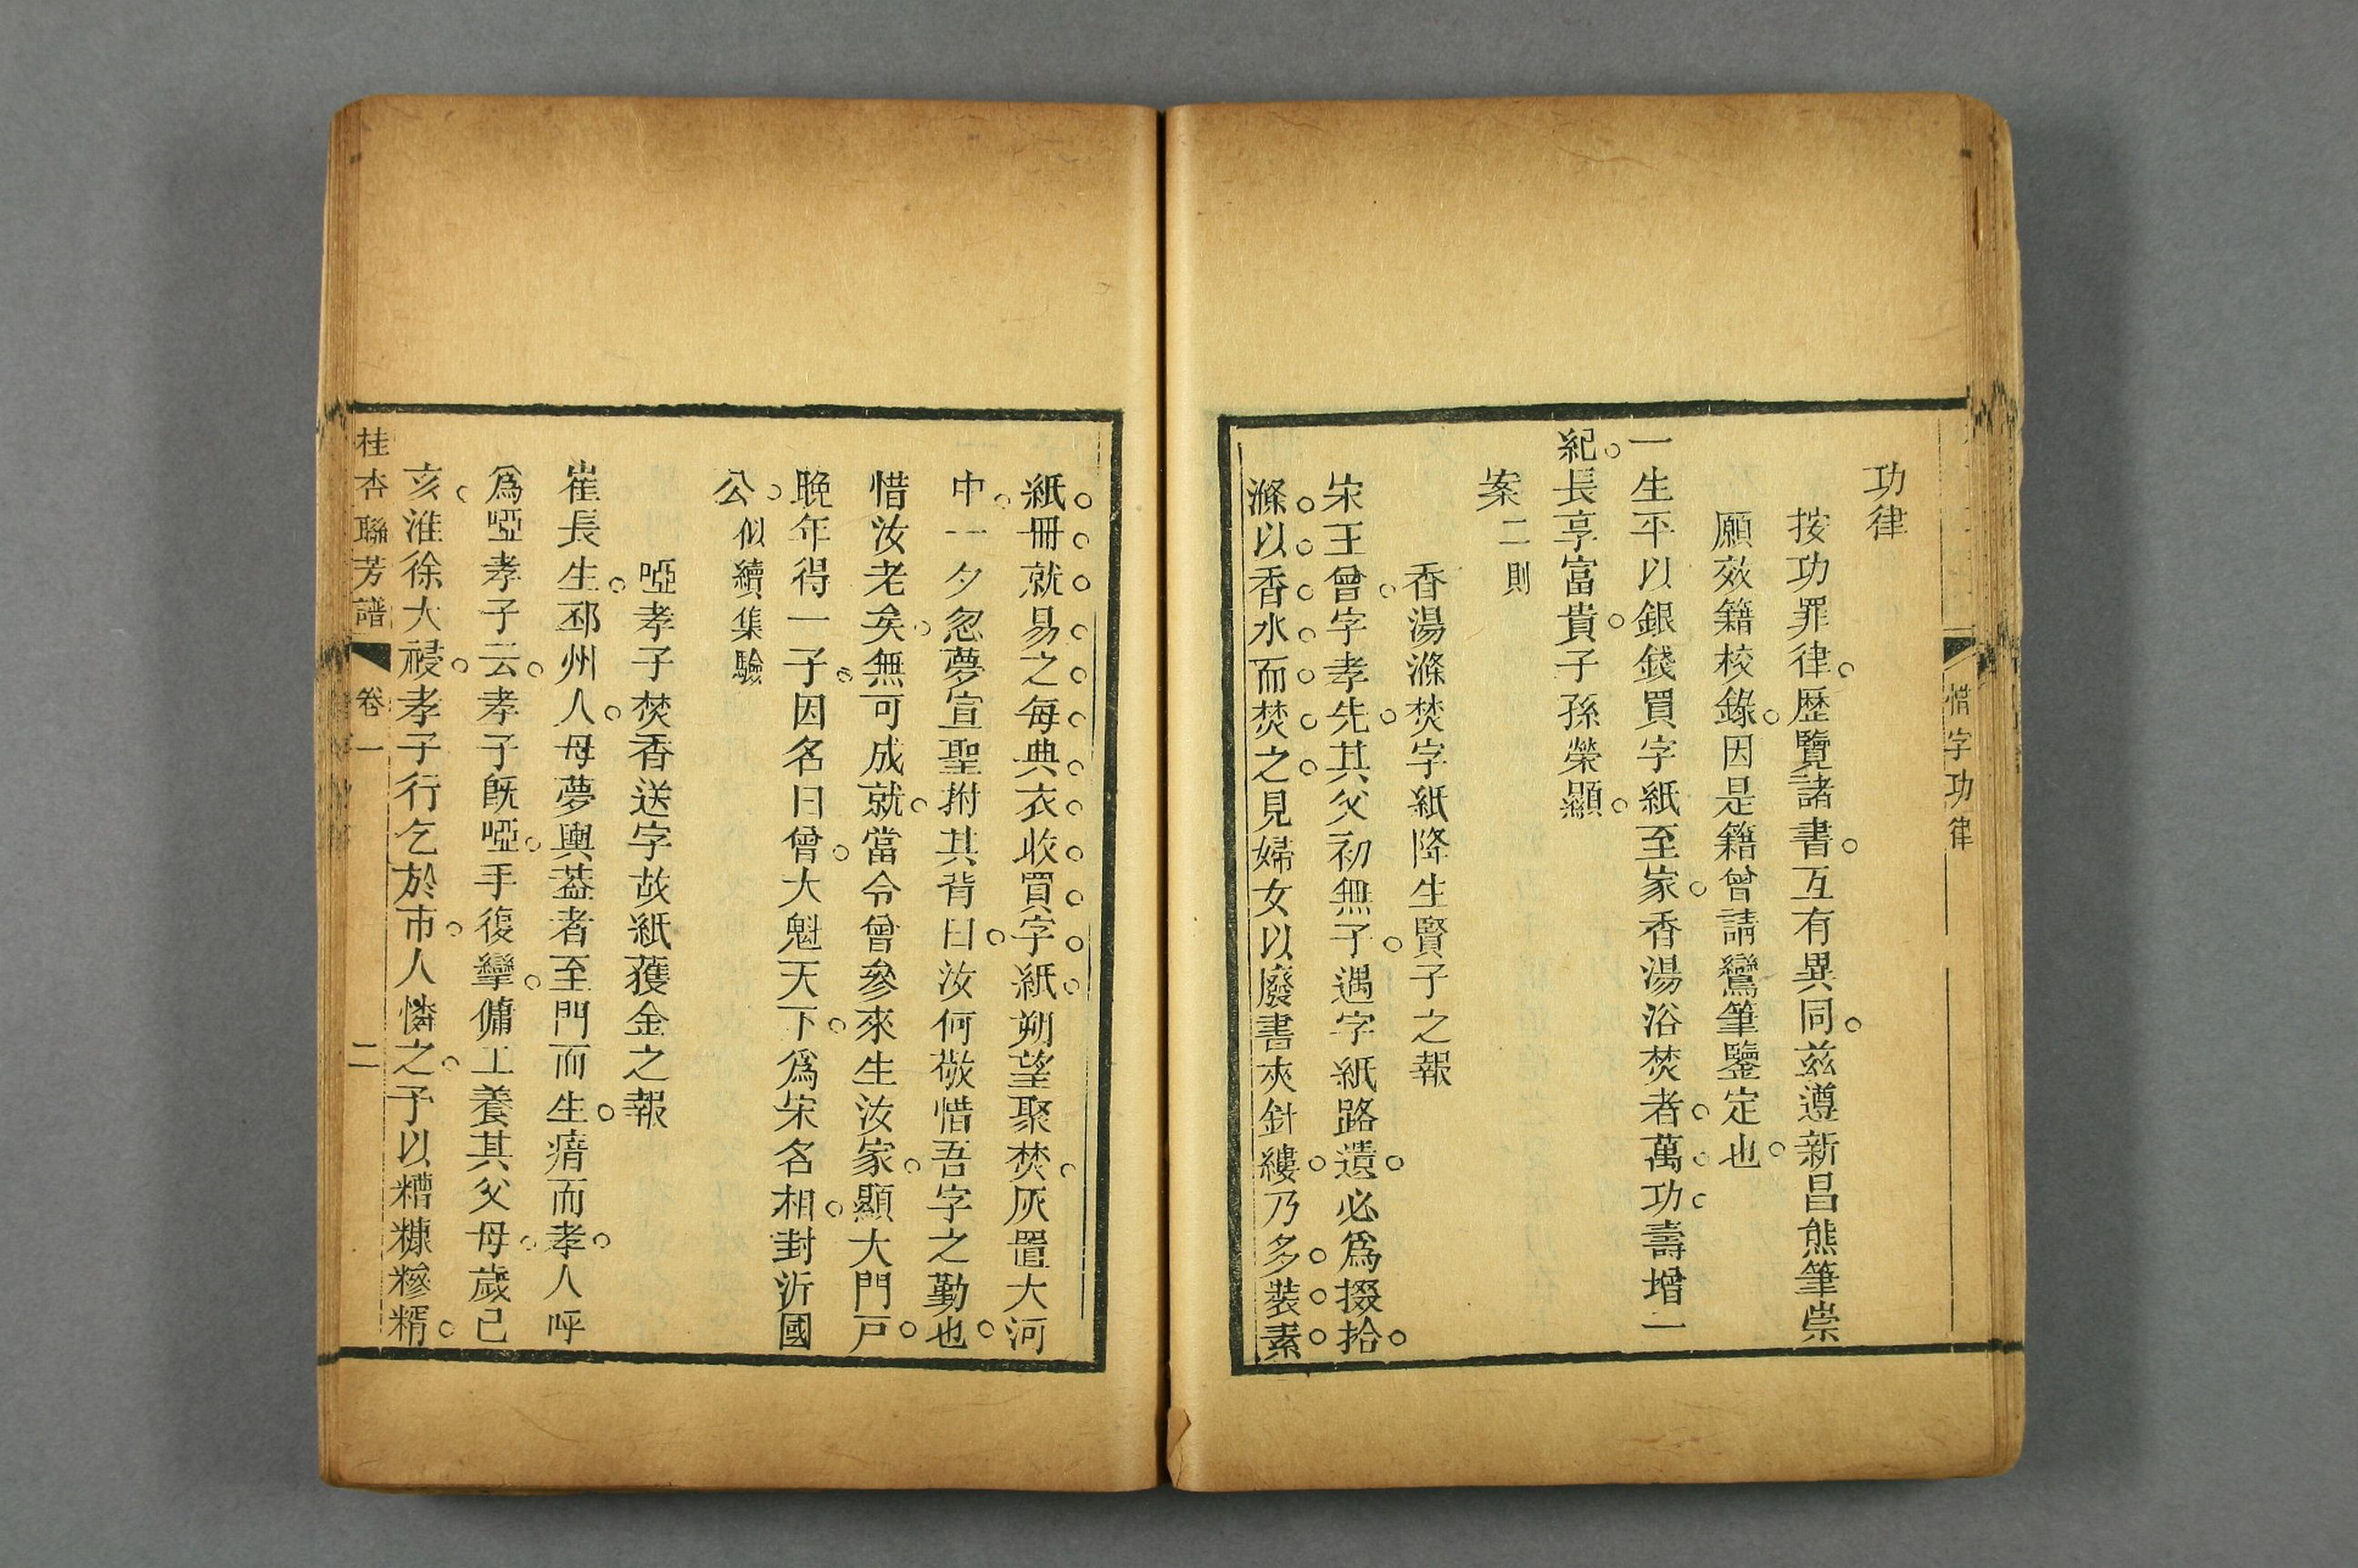 惜字功律
功律
按功罪律歷覽諸書互有異同茲遵新昌熊筆崇
願效籍校錄因是籍曾請鸞筆鑒定也
一生平以銀錢買字紙至家香湯浴焚者萬功壽增一
紀長享富貴子孫榮顯
案二則
香湯滌焚字紙降生賢子之報
宋王曾字孝先其父初無子遇字紙路遺必爲掇拾
滌以香水而焚之見婦女以廢書夾針縷乃多裝素
紙冊就易之每典衣收買字紙朔望聚焚灰置大河
中一夕忽夢宣聖拊其背曰汝何敬惜吾字之勤也
惜汝老矣無可成就當令曾參來生汝家顯大門戸
晚年得一子因名曰曾大魁天下爲宋名相封沂國
公似續集驗
啞孝子焚香送字故紙獲金之報
崔長生邳州人母夢輿葢者至門而生瘖而孝人呼
爲啞孝子云孝子旣啞手復攣傭工養其父母歲己
亥淮徐大祲孝子行乞於市人憐之予以糟糠糝糈
桂杏聯芳譜 卷一 二